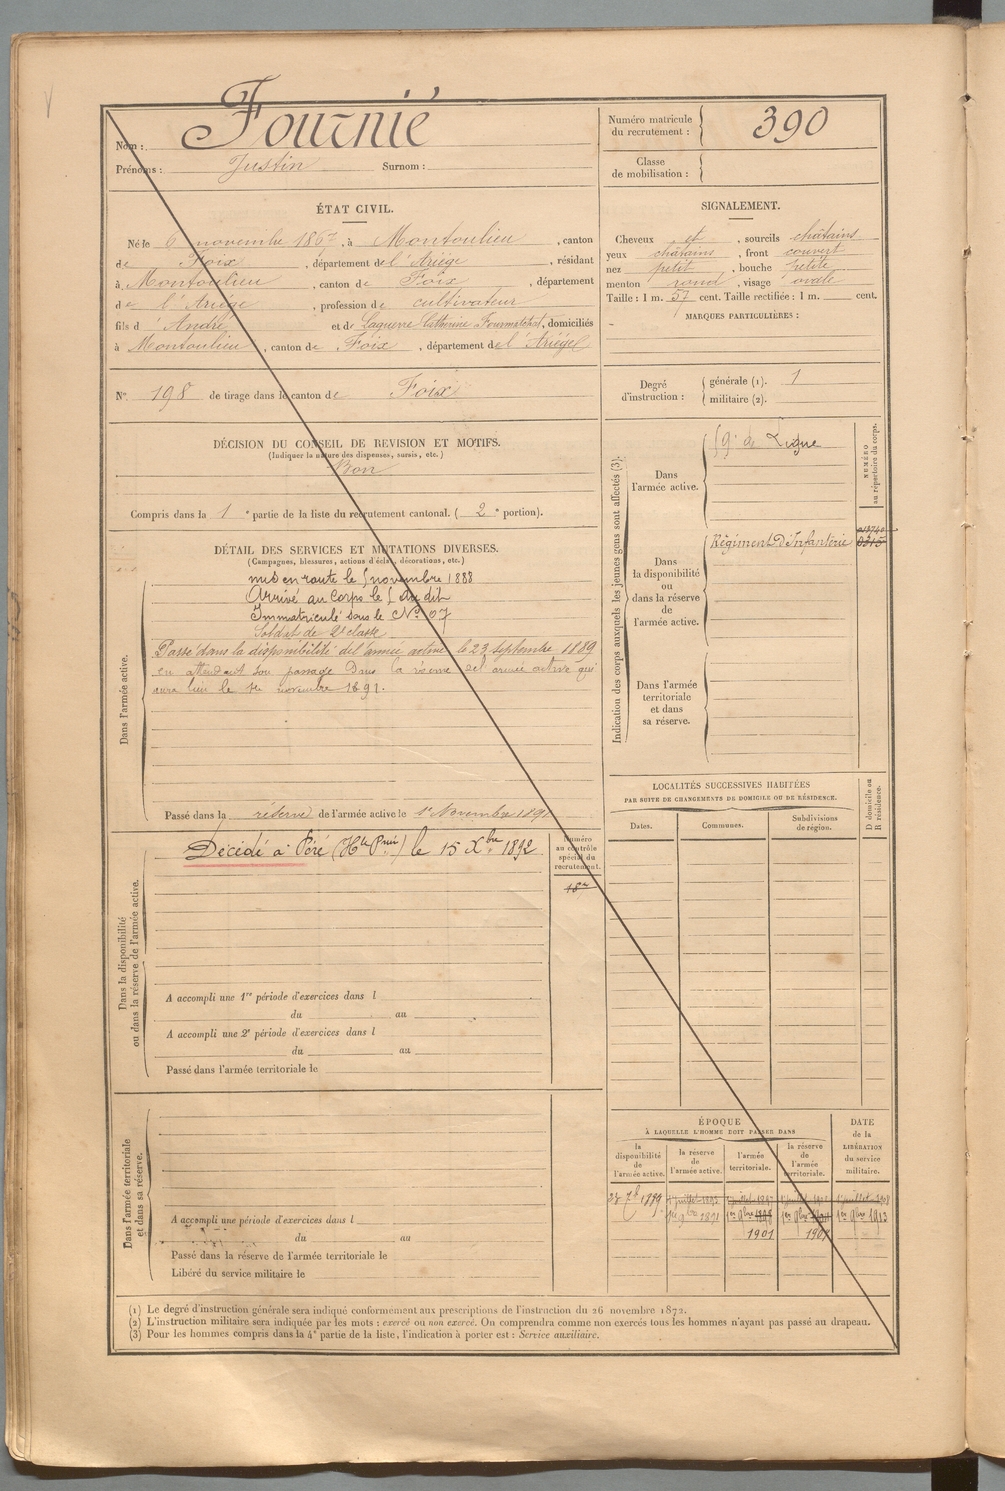 Nom : Fournié
Prénoms : Justin Surnom :
Numéro matricule du recrutement : 390
Classe de mobilisation :
ÉTAT CIVIL.
Né le 6 novembre 1867, à Montoulieu, canton
de Foix, département de l'Ariège, résidant
à Montoulieu, canton de Foix, département
de l'Ariège, profession de cultivateur
fils d'André et de Laguerre Catherine, domiciliés
à Montoulieu, canton de Foix, département de l'Ariège
SIGNALEMENT.
Cheveux et, sourcils châtains
yeux châtains, front couvert
nez petit, bouche petite
menton rond, visage ovale
Taille : 1 m. 57 cent. Taille rectifiée : 1 m. cent.
MARQUES PARTICULIÈRES :
N° 198 de tirage dans le canton de Foix
Degré d'instruction : générale (1). 1
militaire (2).
DÉCISION DU CONSEIL DE REVISION ET MOTIFS.
(Indiquer la nature des dispenses, sursis, etc.)
Bon
Compris dans la 1e partie de la liste du recrutement cantonal. (2e portion).
DÉTAIL DES SERVICES ET MUTATIONS DIVERSES.
(Campagnes, blessures, actions d'éclat, décorations, etc.)
Dans l'armée active.
mis en route le novembre 1888
Arrivé au Corps le dit
Immatriculé sous le N° 07
Soldat de 2e classe
Passé dans la disponibilité de l'armée active le 23 septembre 1889
en attendant son passage dans la réserve de l'armée active qui
aura lieu le 1er novembre 1891.
Passé dans la réserve de l'armée active le 1er Novembre 1891
Indication des corps auxquels les jeunes gens sont affectés (3).
NUMÉRO au répertoire du corps.
Dans l'armée active.
9e de Ligne
Dans la disponibilité ou dans la réserve de l'armée active.
Régiment d'Infanterie
Dans l'armée territoriale et dans sa réserve.
Dans la disponibilité ou dans la réserve de l'armée active.
Numéro au contrôle spécial du recrutement.
Décédé à Péré (Htes Pnées) le 15 Xbre 1892
A accompli une 1re période d'exercices dans l
du au
A accompli une 2e période d'exercices dans l
du au
Passé dans l'armée territoriale le
LOCALITÉS SUCCESSIVES HABITÉES
PAR SUITE DE CHANGEMENTS DE DOMICILE OU DE RÉSIDENCE.
D domicile ou R résidence.
Dates. Communes. Subdivisions de région.
Dans l'armée territoriale et dans sa réserve.
A accompli une période d'exercices dans l
du au
Passé dans la réserve de l'armée territoriale le
Libéré du service militaire le
ÉPOQUE
À LAQUELLE L'HOMME DOIT PASSER DANS
DATE de la LIBÉRATION du service militaire.
la disponibilité de l'armée active.
la réserve de l'armée active.
l'armée territoriale.
la réserve de l'armée territoriale.
23 7bre 1889
1er 9bre 1891
1er 9bre 1913
1901 1907
(1) Le degré d'instruction générale sera indiqué conformément aux prescriptions de l'instruction du 26 novembre 1872.
(2) L'instruction militaire sera indiquée par les mots : exercé ou non exercé. On comprendra comme non exercés tous les hommes n'ayant pas passé au drapeau.
(3) Pour les hommes compris dans la 4e partie de la liste, l'indication à porter est : Service auxiliaire.